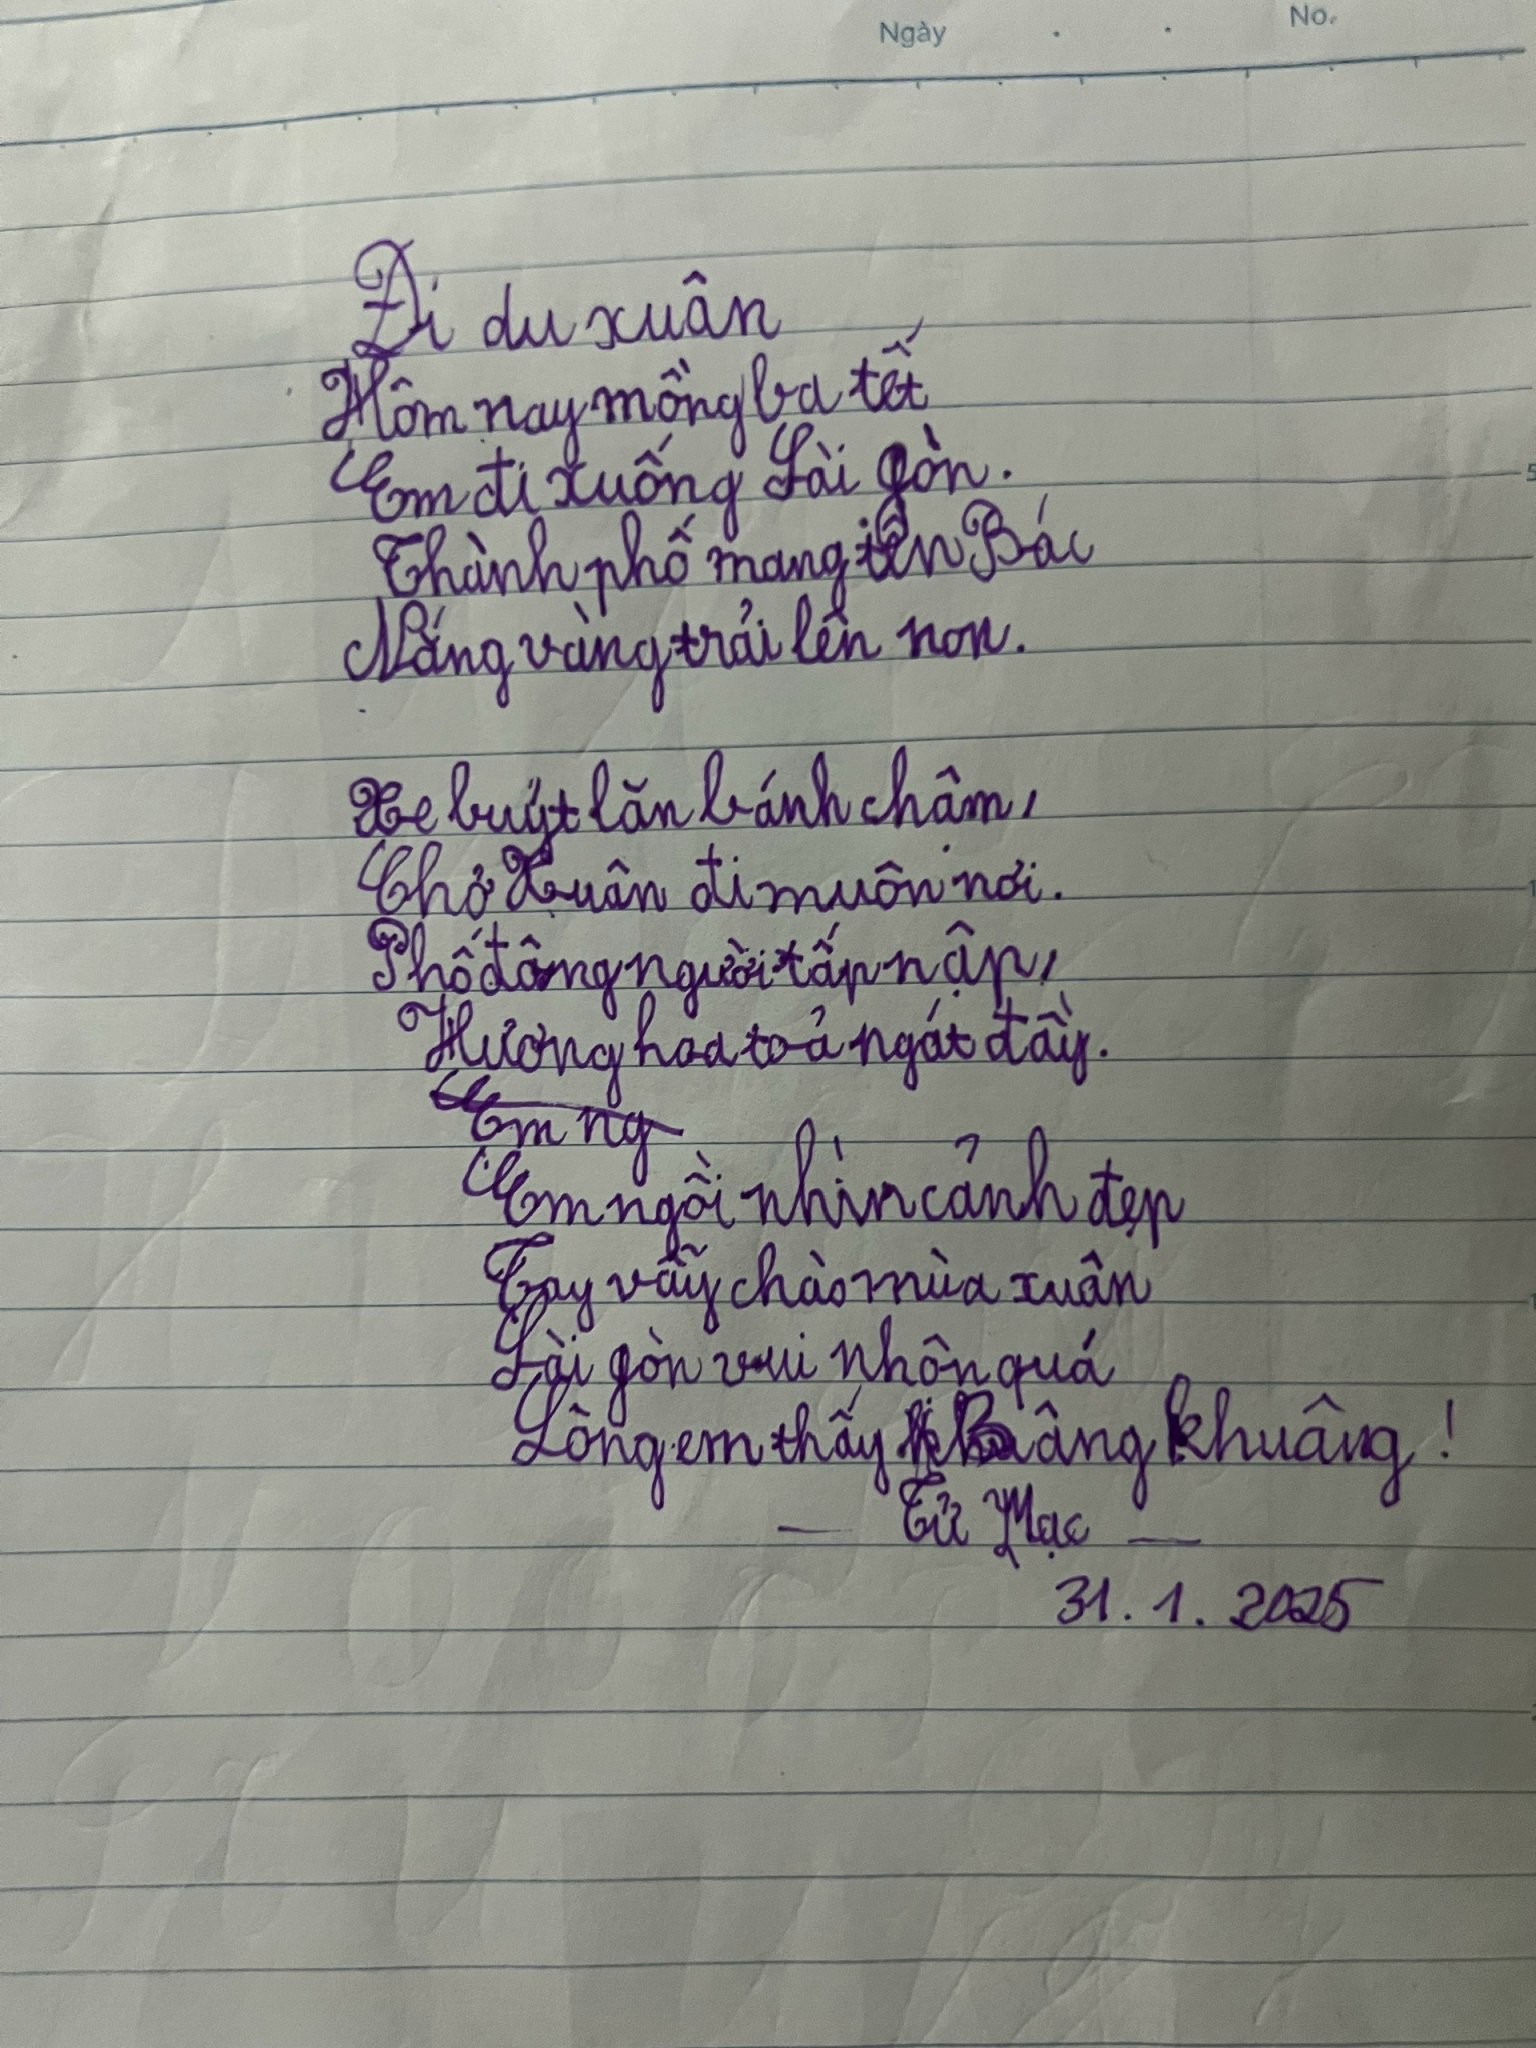 Ngày . . No.
Đi du xuân
Hôm nay mồng ba tết
Em đi xuống Sài gòn.
Thành phố mang tên Bác
Nắng vàng trải lên non.
Xe buýt lăn bánh châm,
Chở Xuân đi muôn nơi.
Phố đông người tấp nập,
Hương hoa toả ngát đầy.
Em ng
Em ngồi nhìn cảnh đẹp
Tay vẫy chào mùa xuân
Sài gòn vui nhôn quá
Lòng em thấy Bâng khuâng !
— Tử Mạc —
31. 1. 2025